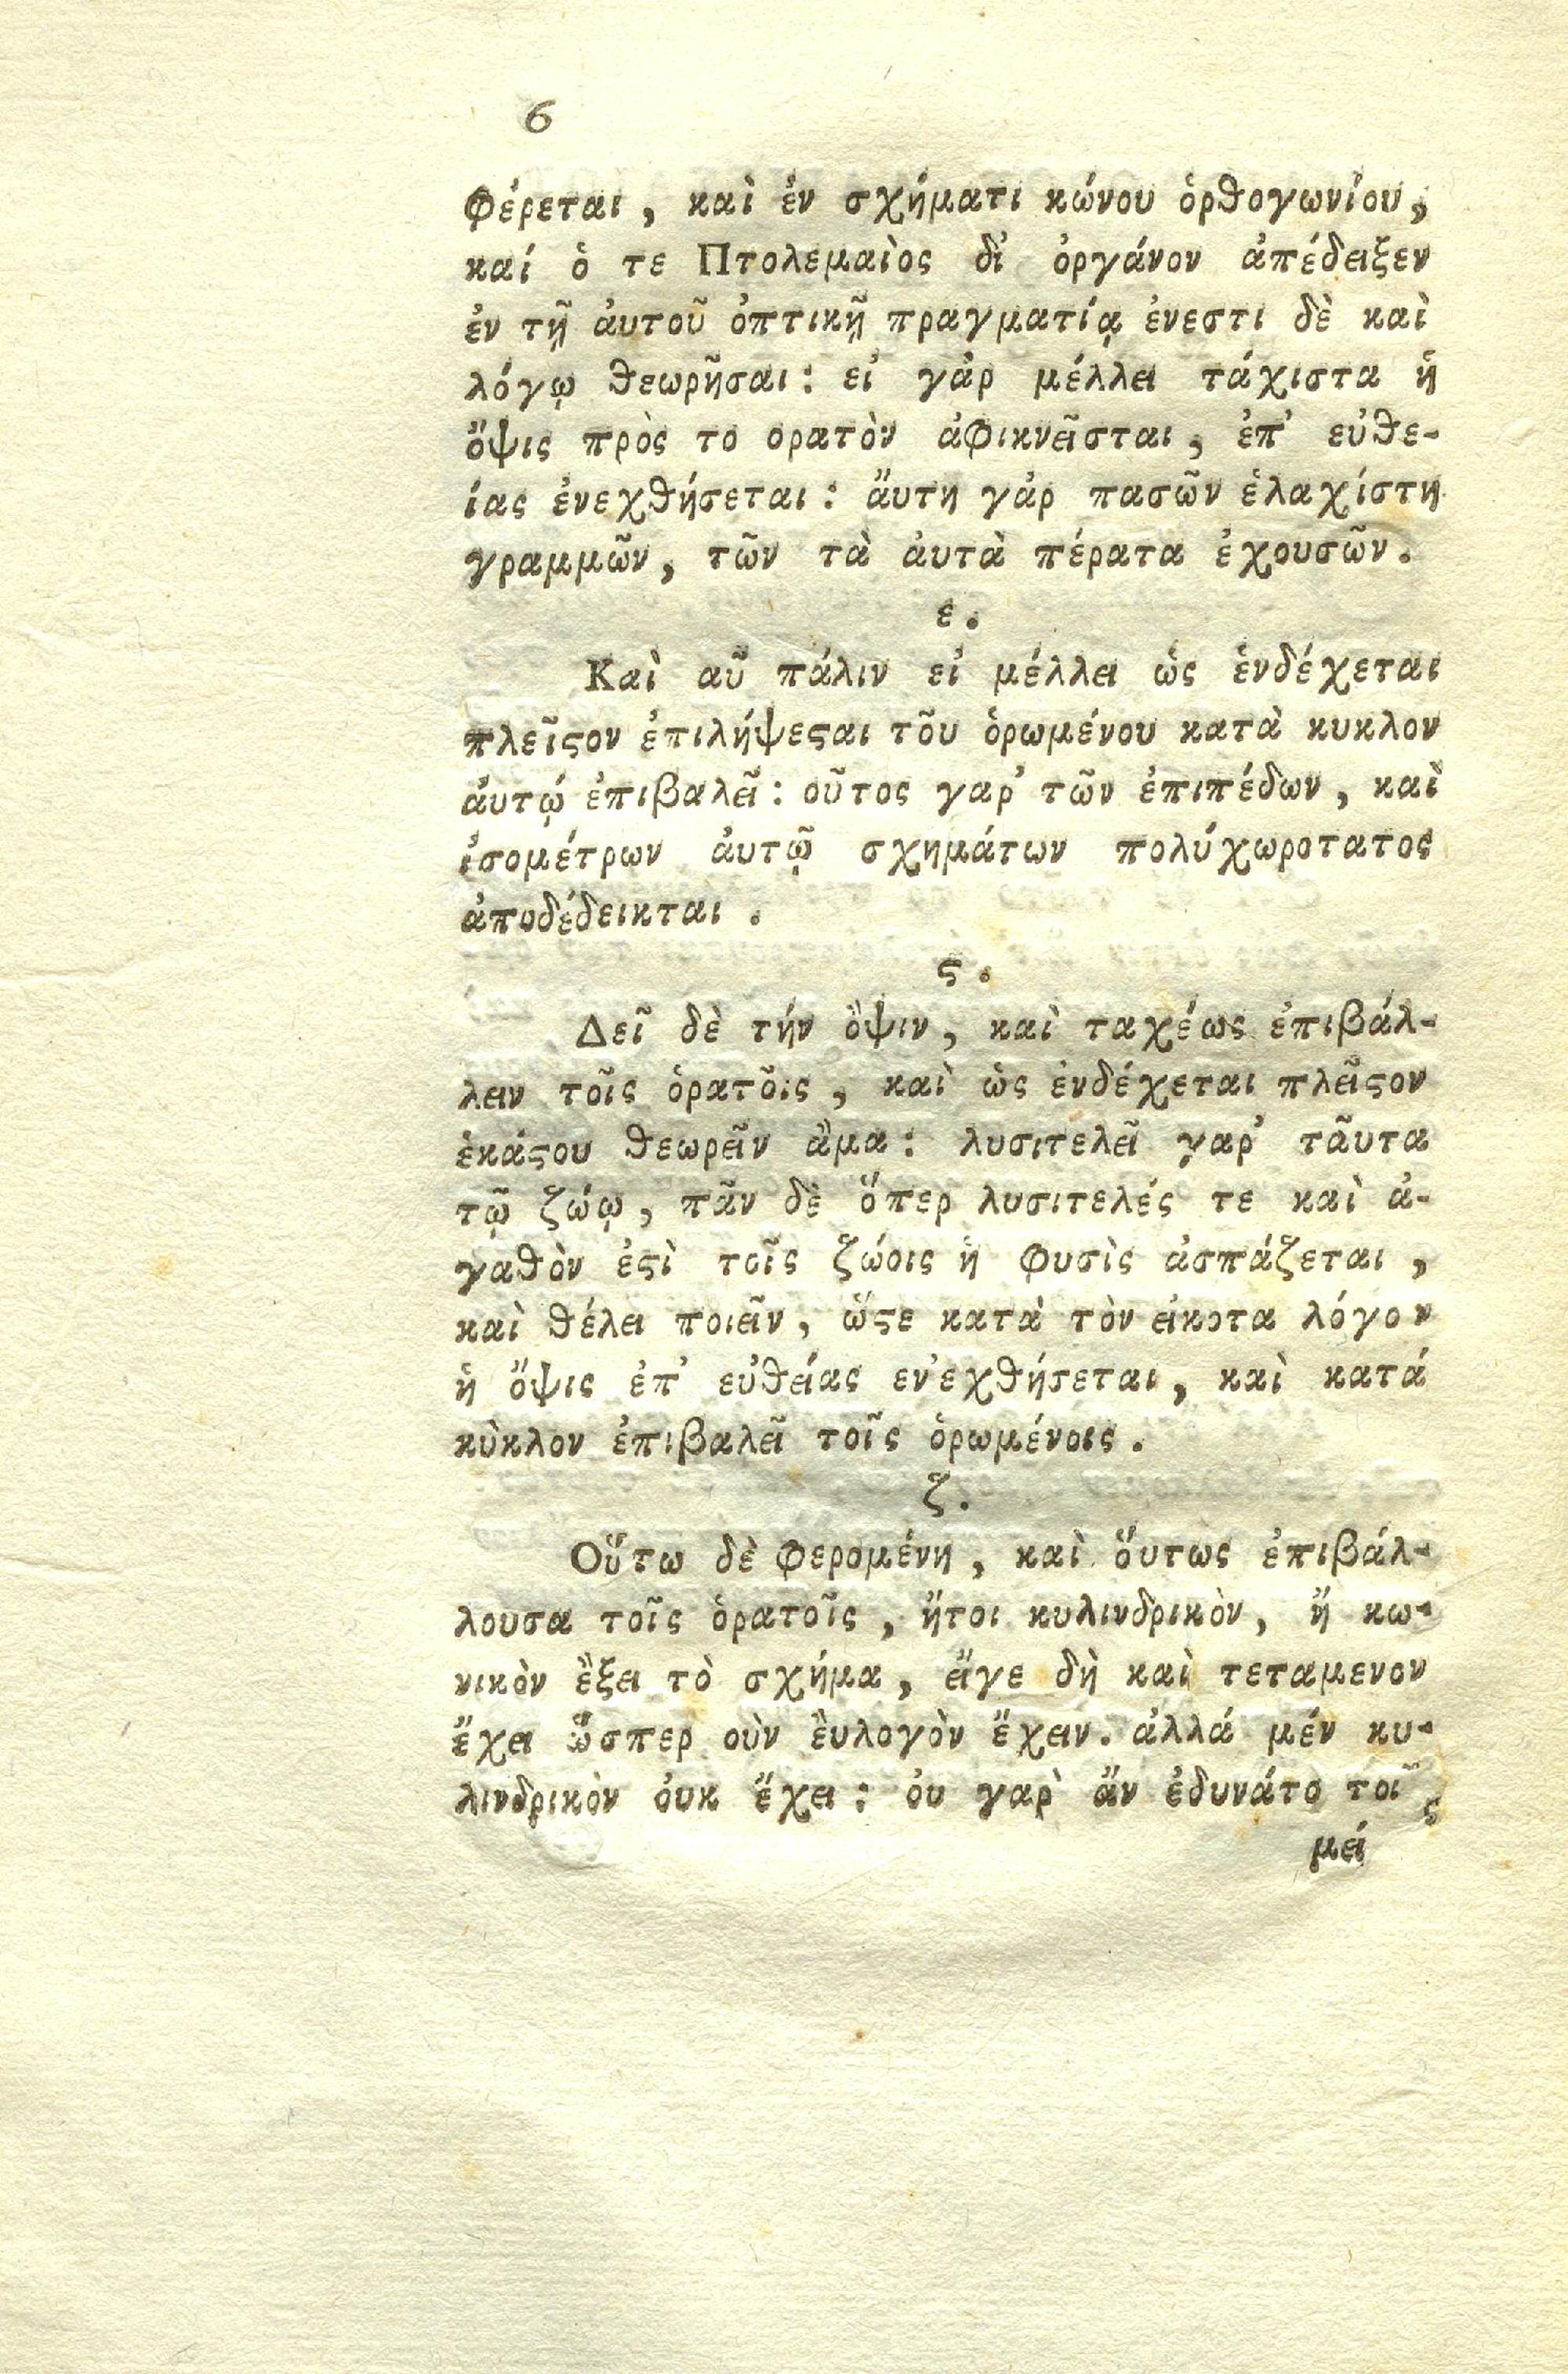 6
φέρεται, καὶ ἐν σχήματι κώνου ὀρθογωνίου,
καί ὁ τε Πτολεμαὶος δἰ ὀργάνον ἀπέδειξεν
ἐν τῇ ἀυτοῦ ὀπτικῇ πραγματίᾳ ἐνεστι δὲ καὶ
λόγῳ θεωρῆσαι: εἰ γἀρ μέλλει τάχιστα ἡ
ὄψις πρὸς το ορατὸν ἀφικνεῖσται, ἐπ' εὐθε-
ίας ἐνεχθήσεται: ἄυτη γἀρ πασῶν ἐλαχίστη
γραμμῶν, τῶν τὰ ἀυτὰ πέρατα ἐχουσῶν.
ε.
Καὶ αὖ πάλιν εἰ μέλλει ὡς ἐνδέχεται
πλεῖϛον ἐπιλήψεϛαι τõυ ὁρωμένου κατὰ κυκλον
ἀυτῴ ἐπιβαλεῖ: οὖτος γαρ' τῶν ἐπιπέδων, καὶ
ἰσομέτρων ἀυτῷ σχημάτων πολύχωροτατος
ἀποδέδεικται.
ϛ.
Δεῖ δὲ τήν ὄψιν, καὶ ταχέως ἐπιβάλ-
λειν τοῖς ὁρατõις, καὶ ὡς ἐνδέχεται πλεῖϛον
ἑκάϛου θεωρεῖν ἅμα: λυσιτελεῖ γαρ' τᾶυτα
τῷ ζώῳ, πᾶν δὲ ὅπερ λυσιτελές τε καὶ ἀ-
γαθὸν ἐϛὶ τοῖς ζώοις ἡ φυσὶς ἀσπάζεται,
καὶ θέλει ποιεῖν, ὥϛε κατὰ τὸν εἰκοτα λόγον
ἡ ὄψις ἐπ' εὐθείας εν'εχθήσεται, καὶ κατά
κὺκλον ἐπιβαλεῖ τοῖς ὁρωμένοις.
ζ.
Οὕτω δὲ φερομένη, καὶ ὅυτως ἐπιβάλ-
λουσα τοῖς ὁρατοῖς, ἤτοι κυλινδρικὸν, ἤ κω-
νικὸν ἕξει τὸ σχήμα, εἴγε δὴ καὶ τεταμενον
ἔχει ὥσπερ οὺν ἒυλογὸν ἔχειν. ἀλλά μέν κυ-
λινδρικὸν ὀυκ ἔχει: ὀυ γαρ̀ ἄν ἐδυνάτο τοῖς
μεί